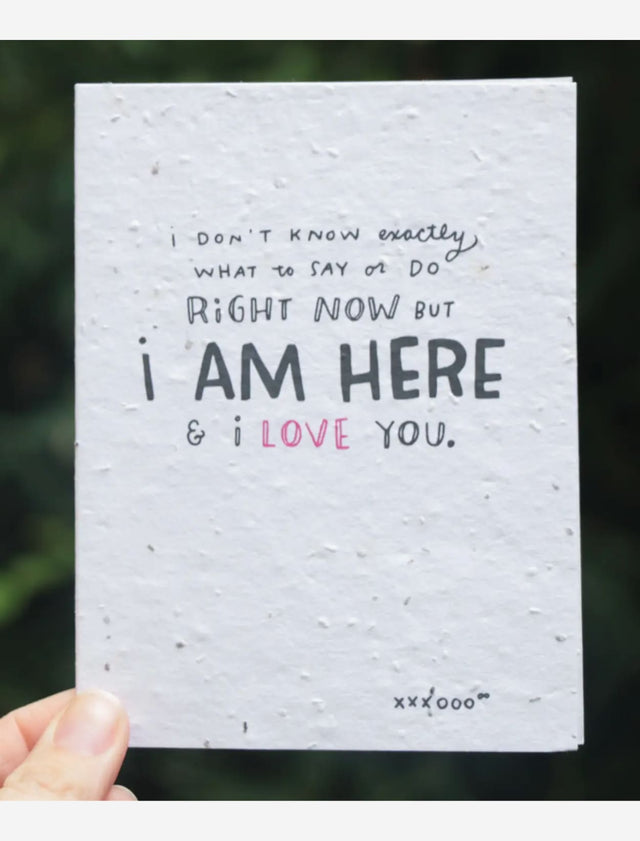 i DON'T KNOW exactly
WHAT to SAY or DO
RiGHT NOW BUT
i AM HERE
& i LOVE YOU.
xxx'ooo∞